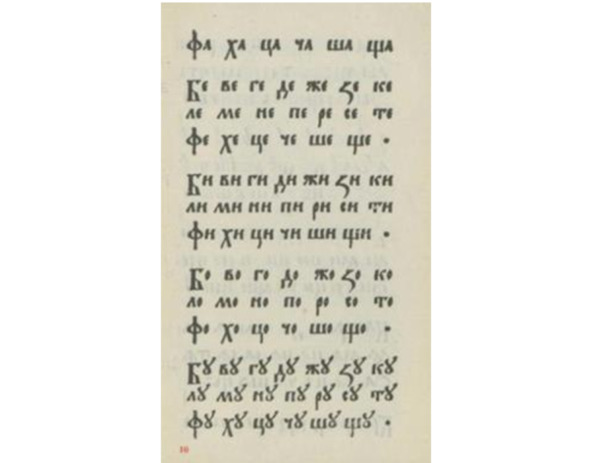 фа ха ца ча ша ща
Бе ве ге де же ѕе ке
ле ме не пе ре се те
фе хе це че ше ще .
Би ви ги ди жи ѕи ки
ли ми ни пи ри си ти
фи хи ци чи ши щи .
Бо во го до жо ѕо ко
ло мо но по ро со то
фо хо цо чо шо що .
Бꙋ вꙋ гꙋ дꙋ жꙋ ѕꙋ кꙋ
лꙋ мꙋ нꙋ пꙋ рꙋ сꙋ тꙋ
фꙋ хꙋ цꙋ чꙋ шꙋ щꙋ .